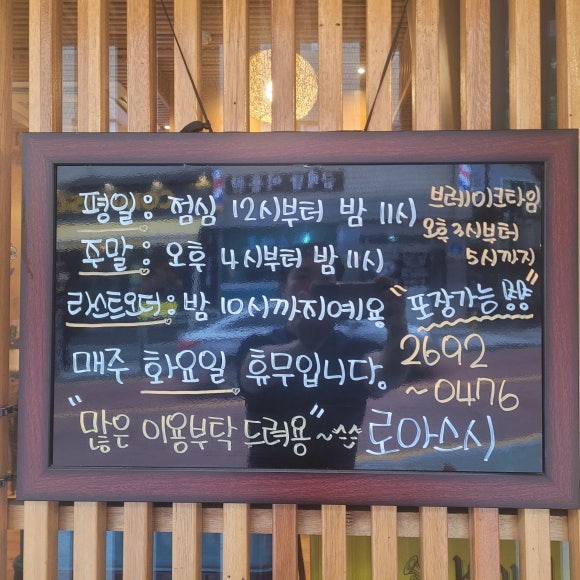 평일: 점심 12시부터 밤 11시
주말: 오후 4시부터 밤 11시
라스트오더: 밤 10시까지예용
매주 화요일 휴무입니다.
"많은 이용부탁 드려용"~^^
로아스시
브레이크타임
오후 3시부터
5시까지
"포장가능용용"
2692
~0476